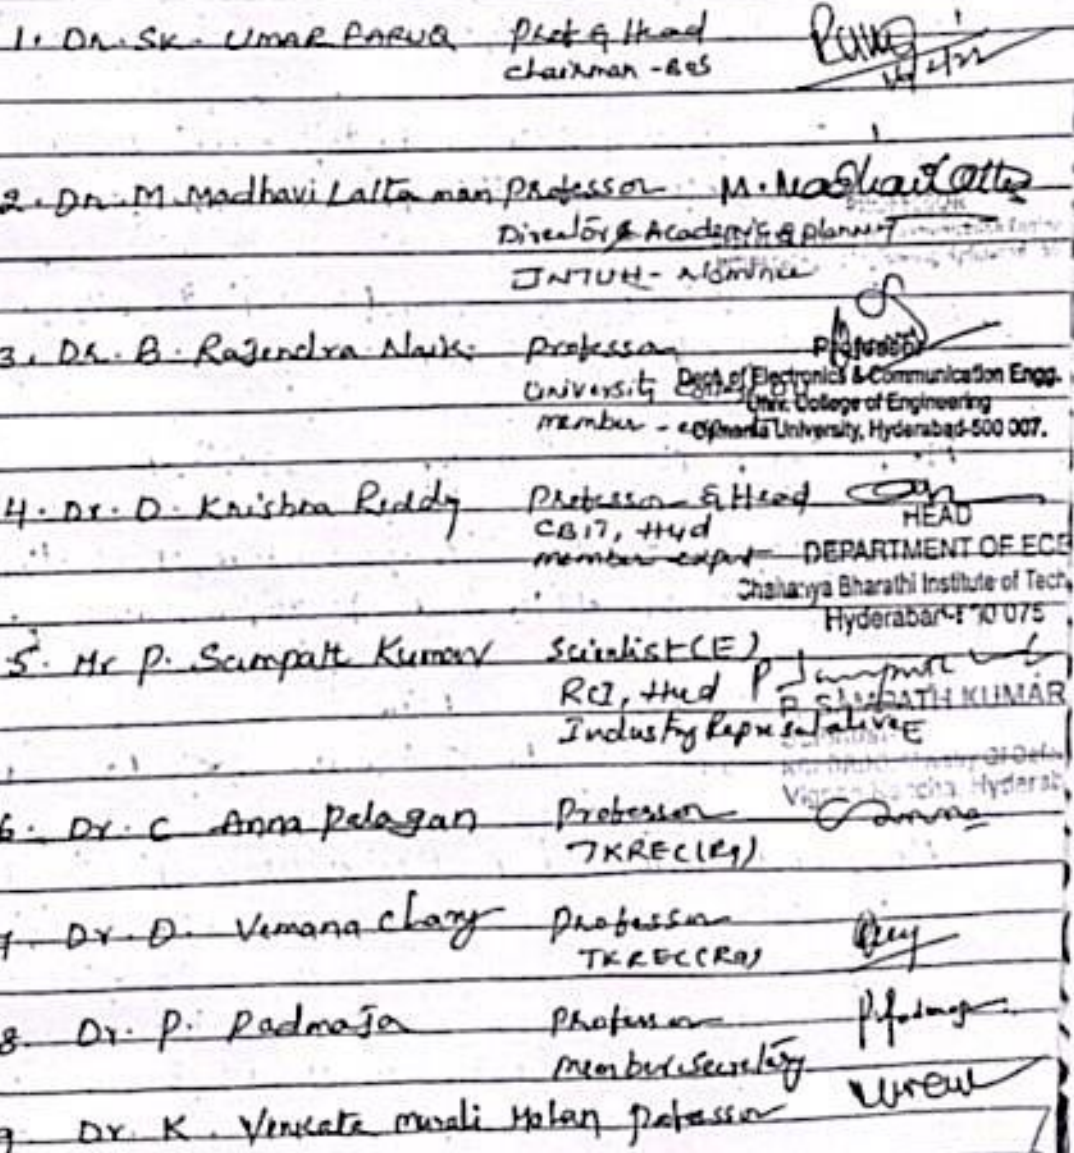 1. Dr. SK. UMAR FARUQ Prof & Head
Chairman - BOS
2. Dr. M. Madhavi Latta man Professor M. Madhavi Latta
Director Academic & Planner
JNTUH - Nominee
3. Dr. B. Rajendra Naik. Professor Professor
University Dept. of Electronics & Communication Engg.
Univ. College of Engineering
member - Osmania University, Hyderabad-500 007.
4. Dr. D. Krishna Reddy Professor & Head
CBIT, Hyd HEAD
member expert DEPARTMENT OF ECE
Chaitanya Bharathi Institute of Tech.
Hyderabad 075
5. Mr P. Sampatt Kumar Scientist (E)
RCI, Hyd P. SAMPATH KUMAR
Industry Representative E
Hyderab
6. Dr. C Anna Palagan Professor
TKREC(R9)
7. Dr. D. Vemana Chary Professor
TKREC(R9)
8. Dr. P. Padmaja Professor P. Padmaja
member secretary
9 Dr. K. Venkata Murali Mohan Professor